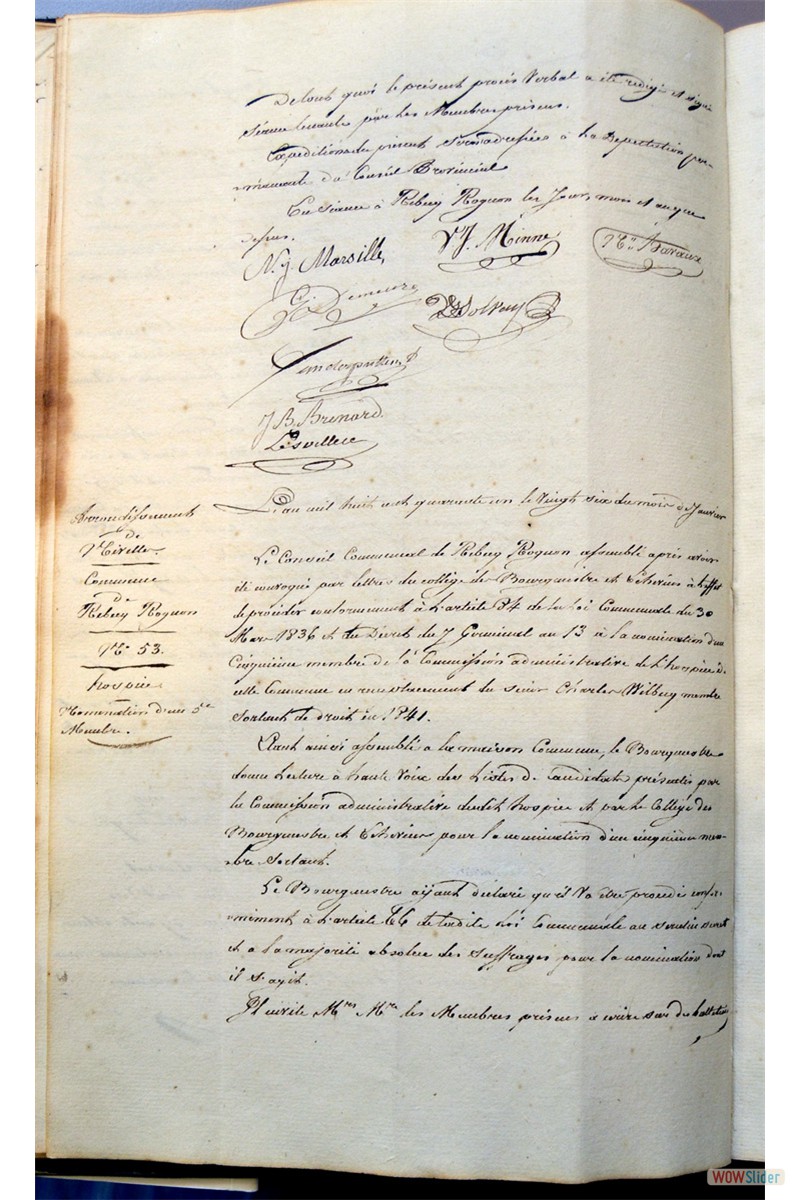 De tout quoi le présent procès Verbal a été rédigé et signé
Séance tenante par les Membres présens.
Expéditions du présent seront adressées à la Députation per-
manente du Conseil Provincial
En séance à Rebecq Rognon les Jour, mois et an que
dessus.
N. J. Marsille,
V. J. Minne
Demeure
Solvay
Vanderputten
J B. Brenard.
Arrondissement
de
Nivelles.
Commune
de
Rebecq Rognon
N° 53.
hospice
Nomination d'un 5e
Membre.
L'an mil huit cent quarante un le Vingt six du mois de Janvier
Le Conseil Communal de Rebecq Rognon assemblé après avoir
été convoqué par lettres du collège des Bourgmestre et Echevins à l'effet
de procéder conformément à l'article 84 de la Loi Communale du 30
Mars 1836 et du Décret du 7 Germinal an 13 à la nomination d'un
Cinquième membre de la Commission administrative de l'hospice de
cette Commune en remplacement du sieur Charles Wilbecq membre
Sortant de droit en 1841.
Etant ainsi assemblé à la maison Commune, le Bourgmestre
donne Lecture à haute Voix des Listes de Candidats présentés par
la Commission administrative dudit hospice et par le Collège des
Bourgmestre et Echevins pour la nomination d'un cinquième mem-
bre Sortant.
Le Bourgmestre aÿant déclaré qu'il Va être procédé confor-
mément à l'article 66 de ladite Loi Communale au scrutin secret
et à la majorité absolue des suffrages pour la nomination dont
il s'agit.
Il invite Mrs les Membres présens à écrire sur des bulletins
WOWSlider